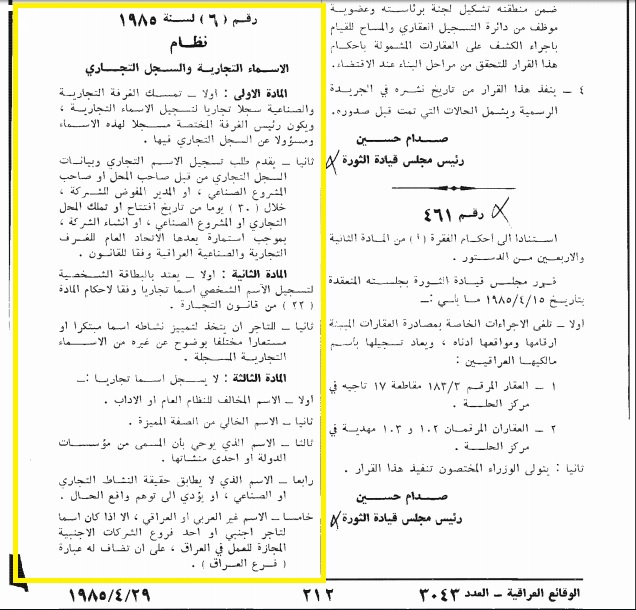 ضمن منطقته تشكيل لجنة برئاسته وعضوية
موظف من دائرة التسجيل العقاري والمساح للقيام
باجراء الكشف على العقارات المشمولة باحكام
هذا القرار للتحقق من مراحل البناء عند الاقتضاء.
٤ ــ ينفذ هذا القرار من تاريخ نشره في الجريدة
الرسمية ويشمل الحالات التي تمت قبل صدوره.
صدام حسين
رئيس مجلس قيادة الثورة
رقم ٤٦١
استنادا الى أحكام الفقرة (أ) من المادة الثانية
والاربعين من الدستور.
قرر مجلس قيادة الثورة بجلسته المنعقدة
بتاريخ ١٩٨٥/٤/١٥ ما يلي :ــ
اولا ــ تلغى الاجراءات الخاصة بمصادرة العقارات المبينة
ارقامها ومواقعها ادناه ، ويعاد تسجيلها باسم
مالكيها العراقيين :
١ ــ العقار المرقم ١٨٣/٣ مقاطعة ١٧ تاجيه في
مركز الحلة .
٢ ــ العقاران المرقمان ١٠٢ و ١٠٣ مهدية في
مركز الحلة .
ثانيا : يتولى الوزراء المختصون تنفيذ هذا القرار .
صدام حسين
رئيس مجلس قيادة الثورة
رقم (٦) لسنة ١٩٨٥
نظام
الاسماء التجارية والسجل التجاري
المادة الاولى : اولا ــ تمسك الغرفة التجارية
والصناعية سجلا تجاريا لتسجيل الاسماء التجارية ،
ويكون رئيس الغرفة المختصة مسجلا لهذه الاسماء
ومسؤولا عن السجل التجاري فيها .
ثانيا ــ يقدم طلب تسجيل الاسم التجاري وبيانات
السجل التجاري من قبل صاحب المحل او صاحب
المشروع الصناعي ، او المدير المفوض للشركة ،
خلال (٣٠) يوما من تاريخ افتتاح او تملك المحل
التجاري او المشروع الصناعي ، او انشاء الشركة ،
بموجب استمارة يعدها الاتحاد العام للغرف
التجارية والصناعية العراقية وفقا للقانون .
المادة الثانية : اولا ــ يعتد بالبطاقة الشخصية
لتسجيل الاسم الشخصي اسما تجاريا وفقا لاحكام المادة
(٢٢) من قانون التجارة .
ثانيا ــ للتاجر ان يتخذ لتمييز نشاطه اسما مبتكرا او
مستعارا مختلفا بوضوح عن غيره من الاسماء
التجارية المسجلة .
المادة الثالثة : لا يسجل اسما تجاريا :ــ
اولا ــ الاسم المخالف للنظام العام او الاداب .
ثانيا ــ الاسم الخالي من الصفة المميزة .
ثالثا ــ الاسم الذي يوحي بأن المسمى من مؤسسات
الدولة او احدى منشأتها .
رابعا ــ الاسم الذي لا يطابق حقيقة النشاط التجاري
او الصناعي ، او يؤدي الى توهم واقع الحال .
خامسا ــ الاسم غير العربي او العراقي ، الا اذا كان اسما
لتاجر اجنبي او احد فروع الشركات الاجنبية
المجازة للعمل في العراق ، على ان تضاف له عبارة
( فرع العراق ) .
الوقائع العراقية ــ العدد ٣٠٤٣
٢١٢
١٩٨٥/٤/٢٩